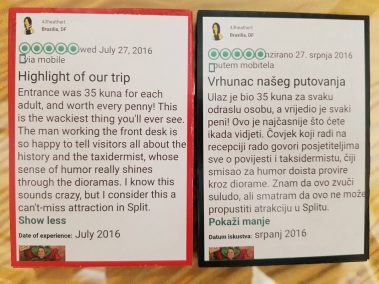 43heatherk
Brasilia, DF
wed July 27, 2016
via mobile
Highlight of our trip
Entrance was 35 kuna for each
adult, and worth every penny! This
is the wackiest thing you'll ever see.
The man working the front desk is
so happy to tell visitors all about the
history and the taxidermist, whose
sense of humor really shines
through the dioramas. I know this
sounds crazy, but I consider this a
can't-miss attraction in Split.
Show less
Date of experience: July 2016
Brasilia, DF
nzirano 27. srpnja 2016
putem mobitela
Vrhunac našeg putovanja
Ulaz je bio 35 kuna za svaku
odraslu osobu, a vrijedio je svaki
peni! Ovo je najčasnije što ćete
ikada vidjeti. Čovjek koji radi na
recepciji rado govori posjetiteljima
sve o povijesti i taksidermistu, čiji
smisao za humor doista provire
kroz diorame. Znam da ovo zvuči
suludo, ali smatram da ovo ne može
propustiti atrakciju u Splitu.
Pokaži manje
Datum iskustva: srpanj 2016